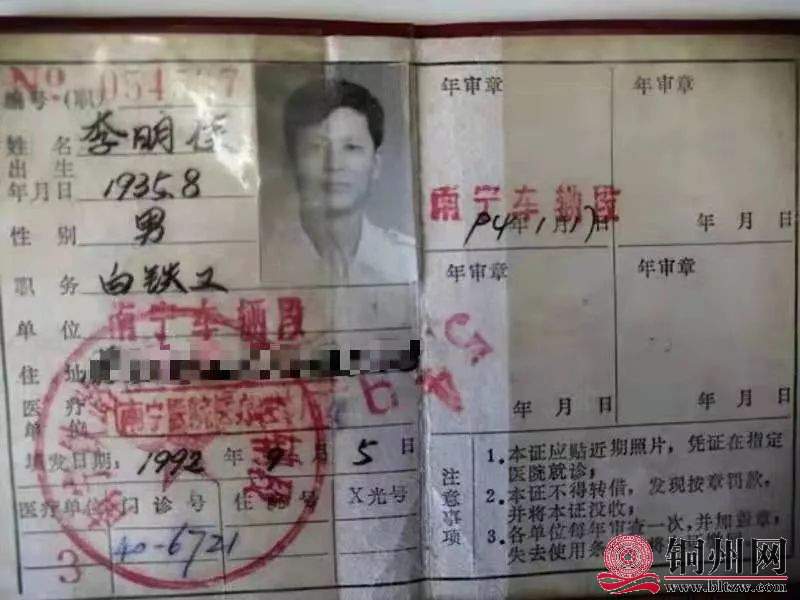 No
编号(职)
姓名 李明
出生
年月日 1935.8
性别 男
职务 白铁工
单位 南宁车辆段
住址
医疗
单位
填发日期: 1992 年 9 月 5 日
医疗单位 门诊号 住院号 X光号
3 40-6721
年审章 年审章
南宁车辆段
94年1月17日 年 月 日
年审章 年审章
年 月 日 年 月 日
注意事项
1.本证应贴近期照片，凭证在指定
医院就诊；
2.本证不得转借，发现按章罚款，
并将本证没收；
3.各单位每年审查一次，并加盖章，
失去使用条
铜州网
www.bltzw.com